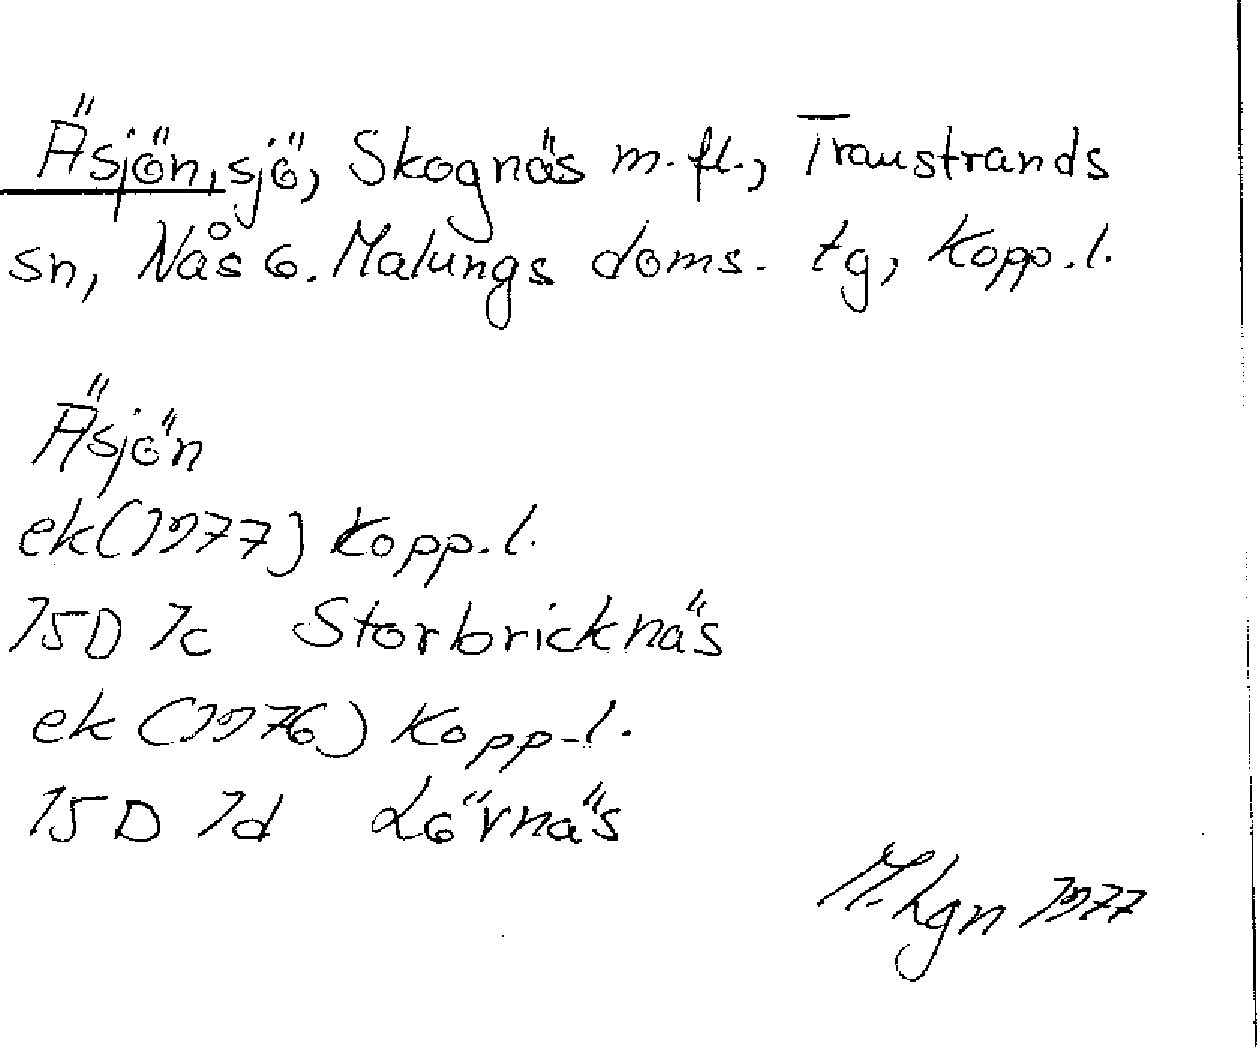 Äsjön, sjö, Skognäs m.fl., Transtrands
sn, Nås o. Malungs doms. tg, Kopp.l.
Äsjön
ek (1977) Kopp.l.
15D 1c Storbricknäs
ek (1976) Kopp.l.
15D 1d Lövnäs
M. Lgn 1977